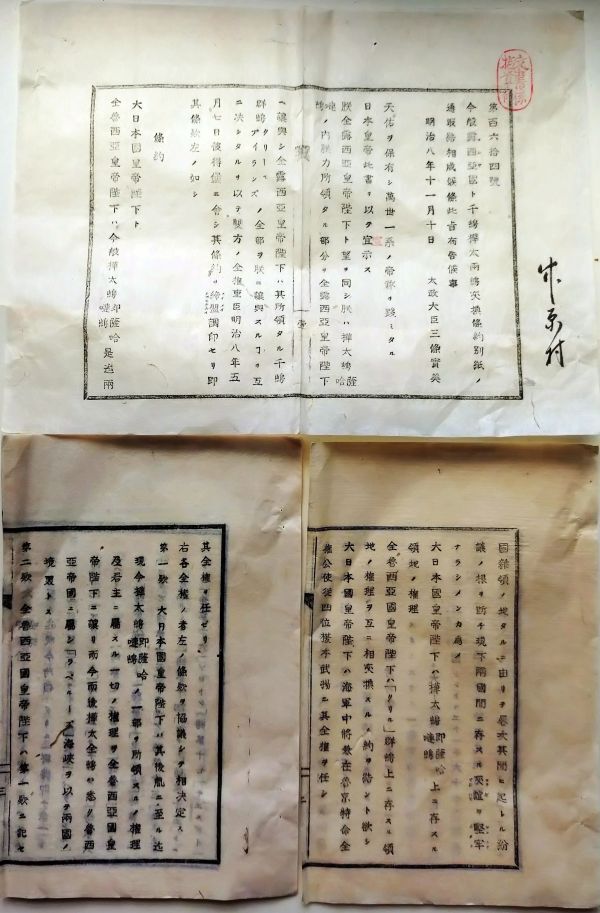 第百六拾四號
今般露西亞國ト千嶋樺太兩嶋交換條約別紙ノ
通取結相成候條此旨布告候事
明治八年十一月十日 太政大臣三條實美
天佑ヲ保有シ萬世一系ノ帝祚ヲ踐ミタル
日本皇帝此書ヲ以テ宣示ス
朕全露西亞皇帝陛下ト望ヲ同シ朕ハ樺太嶋即薩哈
嗹嶋ノ内朕カ所領タル部分ヲ全露西亞皇帝陛下
ヘ讓與シ全露西亞皇帝陛下ハ其所領タル千嶋
群嶋クリーミアイランズノ全部ヲ朕ニ讓與スルヿヲ互
ニ决シタルヲ以テ雙方ノ全權重臣明治八年五
月七日彼得堡ニ會シ其條約ヲ締盟調印セリ即
其條款左ノ如シ
條約
大日本國皇帝陛下ト
全魯西亞國皇帝陛下ハ今般樺太嶋即薩哈嗹嶋是迄兩
國雜領ノ地タルニ由リテ屡次其間ニ起レル紛
議ノ根ヲ斷チ現下兩國間ニ存スル交誼ヲ堅牢
ナラシメンカ爲メ
大日本國皇帝陛下ハ樺太嶋即薩哈嗹嶋上ニ存スル
領地ノ權理
全魯西亞國皇帝陛下ハ「クリル」群嶋上ニ存スル領
地ノ權理ヲ互ニ相交換スルノ約ヲ結ント欲シ
大日本國皇帝陛下ハ海軍中將兼在魯京特命全
權公使從四位榎本武揚ニ其全權ヲ任シ
其全權ヲ任セリ
右各全權ノ者左ノ條款ヲ協議シテ相决定ス
第一款 大日本國皇帝陛下ハ其後胤ニ至ル迄
現今樺太嶋即薩哈嗹嶋ノ一部ヲ所領スルノ權理
及君主ニ屬スル一切ノ權理ヲ全魯西亞國皇
帝陛下ニ讓リ而今而後樺太全嶋ハ悉ク魯西
亞帝國ニ屬シ「ラペルーズ」海峽ヲ以テ兩國ノ
境界トス
第二款 全魯西亞國皇帝陛下ハ第一款ニ記セ